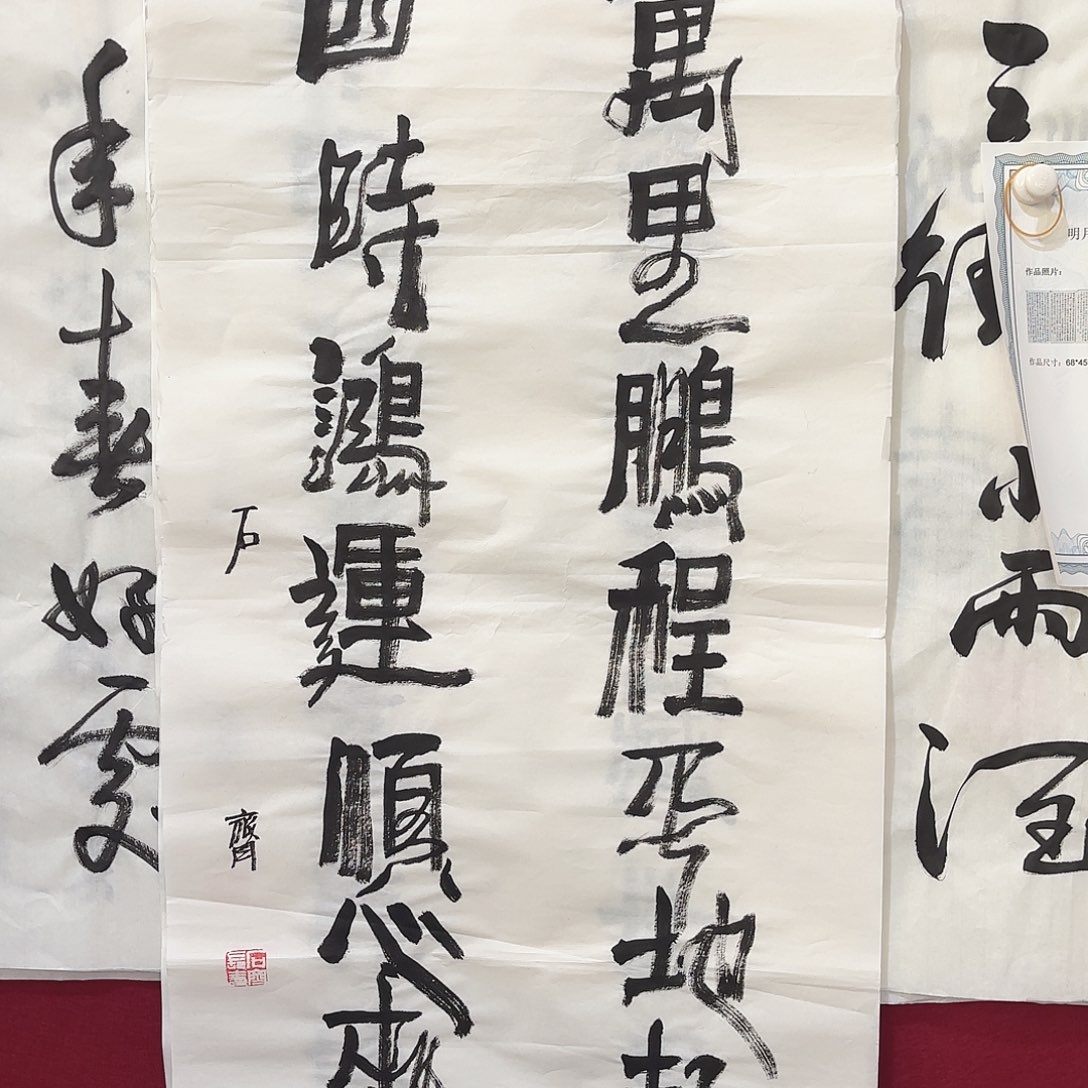 小雨润
明月
作品照片：
作品尺寸：68*45
萬里鵬程平地起
時鴻運順心來
石齊
年春好處